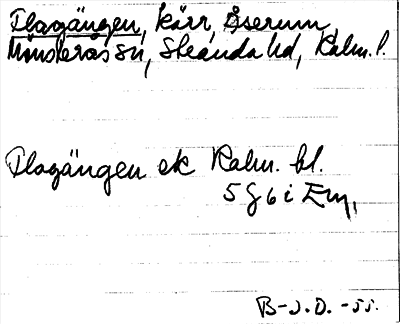 Flagängen, kärr, Åserum,
Mönsterås sn, Stranda hd, Kalm. l.
Flagängen ek Kalm. bl.
5 G 6 i Em,
B-J.D. -55.